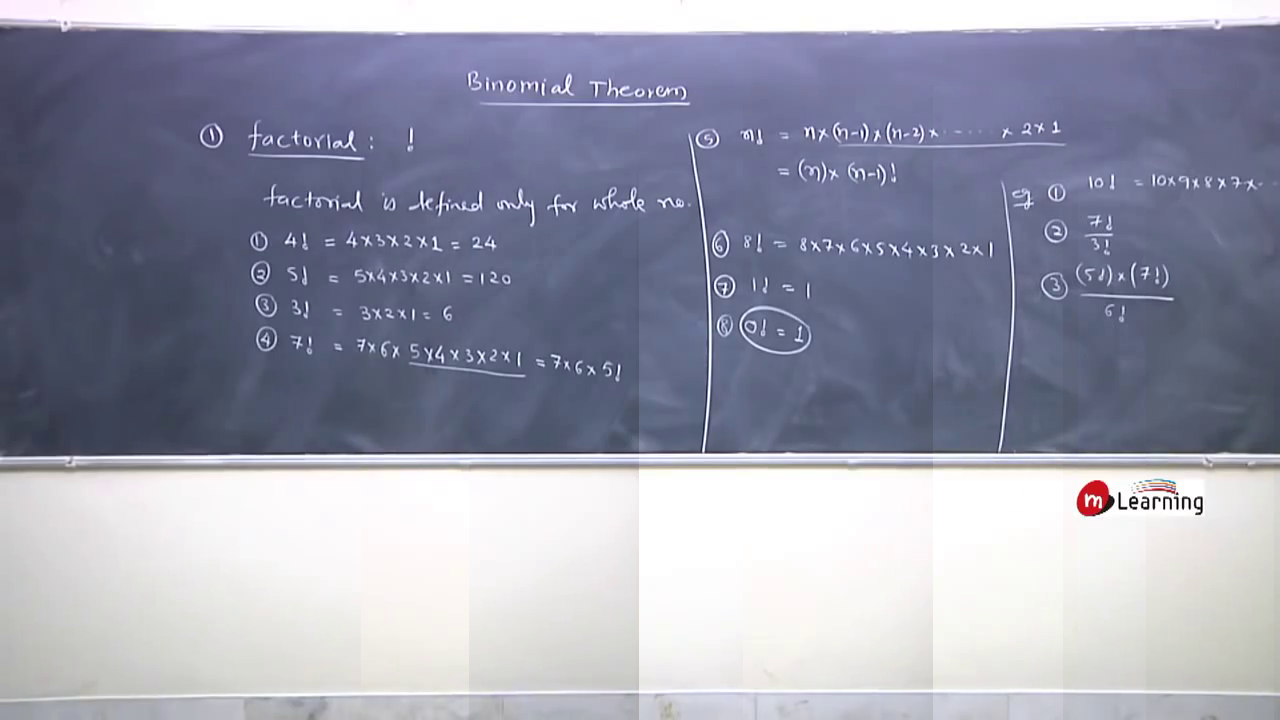 Binomial Theorem
① factorial : !
factorial is defined only for whole no.
① 4! = 4×3×2×1 = 24
② 5! = 5×4×3×2×1 = 120
③ 3! = 3×2×1 = 6
④ 7! = 7×6×5×4×3×2×1 = 7×6×5!
⑤ n! = n×(n-1)×(n-2)×------×2×1
= (n)×(n-1)!
⑥ 8! = 8×7×6×5×4×3×2×1
⑦ 1! = 1
⑧ 0! = 1
eg ① 10! = 10×9×8×7×--
② 7!/3!
③ (5!)×(7!)/6!
m Learning